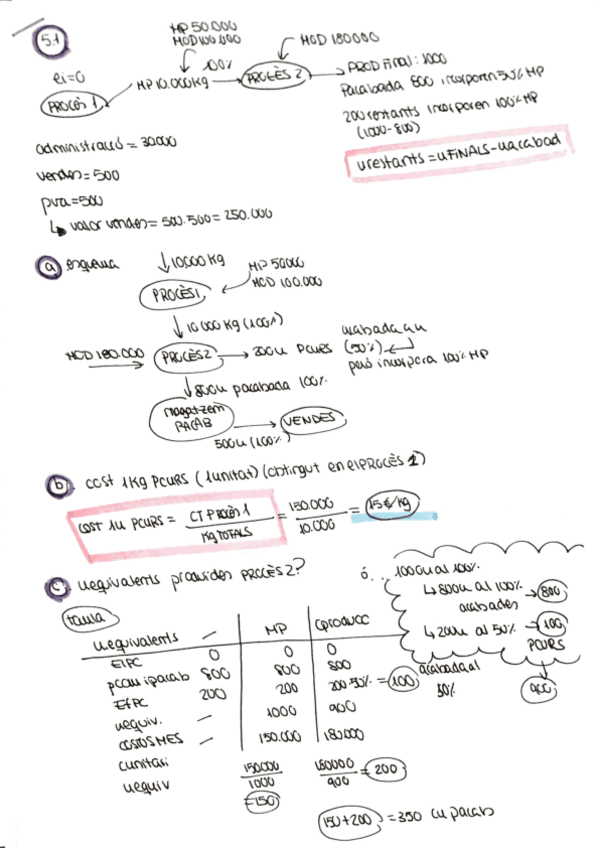 5.1
MP 50.000
MOD 100.000
MOD 180000
100%
ei=0
PROCÉS 1
MP 10.000kg
PROCÈS 2
PROD Final: 1000
Pacabada 800 incorporen 50% MP
200 restants incorporen 100% MP
(1000-800)
urestants = uFINALS - uacabad
administració = 30000
vendes = 500
pva = 500
↳ valor vendes = 500.500 = 250.000
a esquema
↓ 10,000 kg
MP 50000
MOD 100.000
PROCÈS 1
↓ 10 000 kg (100%)
MOD 180.000
PROCÈS 2
200u PCURS
(50%)
però incorpora 100% MP
↓ 800u pacabada 100%
magatzem
PACAB
VENDES
500u (100%)
b cost 1kg PCURS (1unitat) (obtingut en el PROCÈS 1)
COST 1u PCURS = CT PROCÈS 1 / kg TOTALS = 150.000 / 10.000 = 15€/kg
c uequivalents produides PROCÈS 2?
ó... 1000u al 100%
↳ 800u al 100% → 800
acabades
↳ 200u al 50% → 100
PCURS
900
taula
uequivalents — MP Cproducc
EIPC 0 0 0
pcom i parab 800 800 800
EfPC 200 200 200·50% = 100 acabada al 50%
uequiv. — 1000 900
COSTOS MES — 150.000 180000
cunitari 150000 / 1000 180000 / 900 = 200
uequiv = 150
150+200 = 350 cu pacab